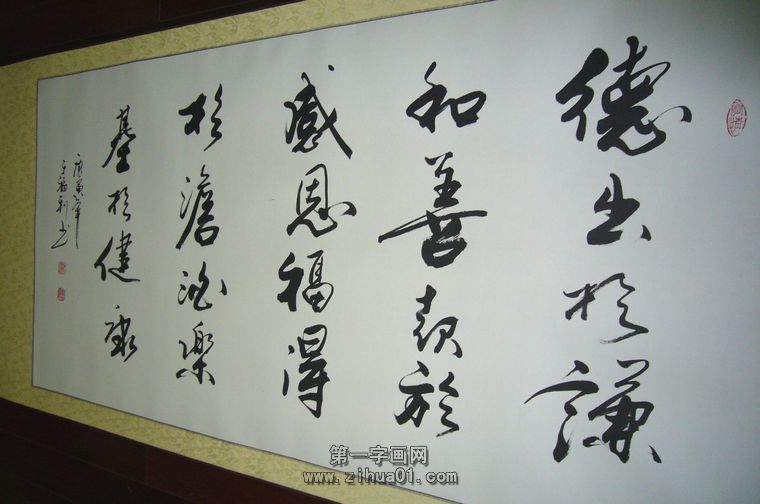 德出於謙
和善於
感恩福得
於澹泊樂
基於健康
庚寅年
福利书
第一字画网
www.zihua01.com